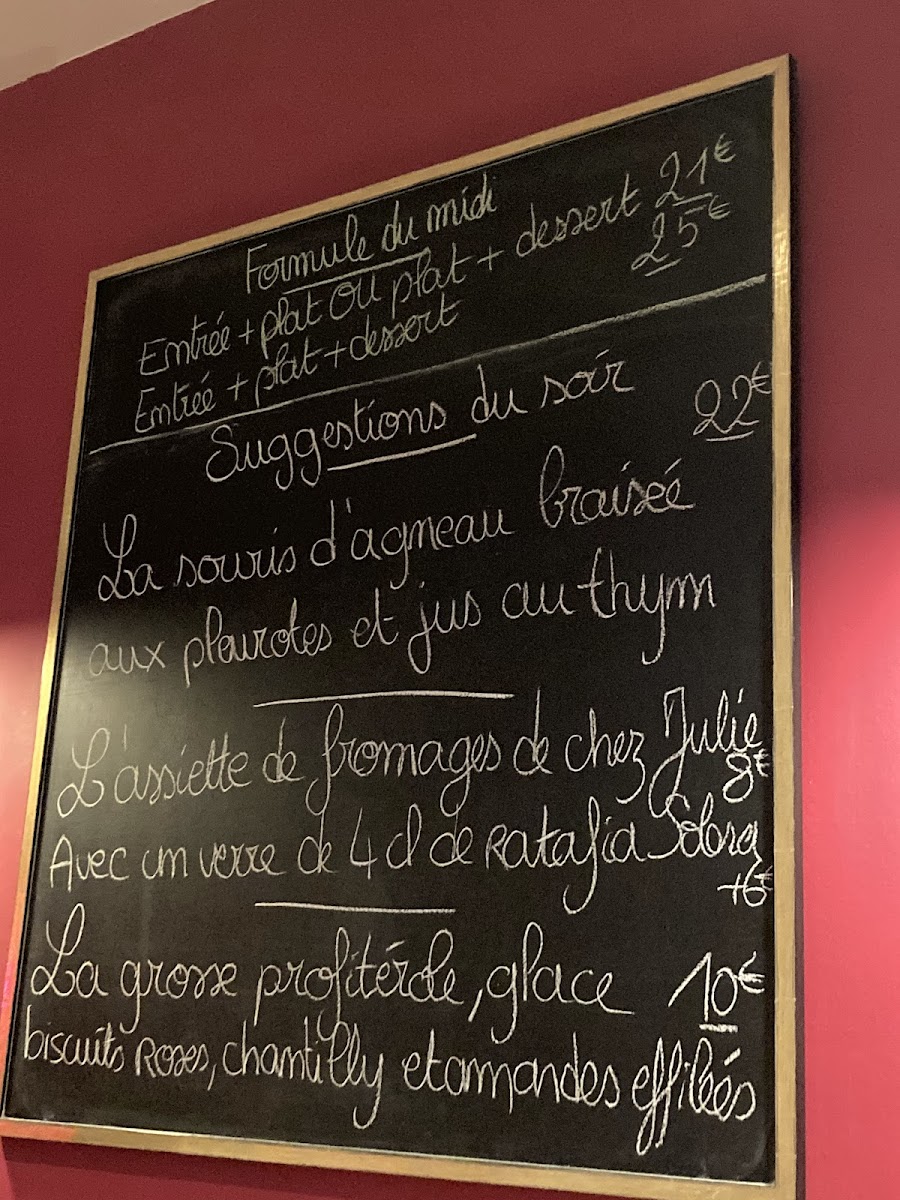 Formule du midi
Entrée + plat OU plat + dessert 21€
Entrée + plat + dessert 25€
Suggestions du soir
22€
La souris d'agneau braisée
aux pleurotes et jus au thym
L'assiette de fromages de chez Julie
8€
Avec un verre de 4 cl de Ratafia Solera
+6€
La grosse profitérole, glace 10€
biscuits Roses, chantilly et amandes effilées